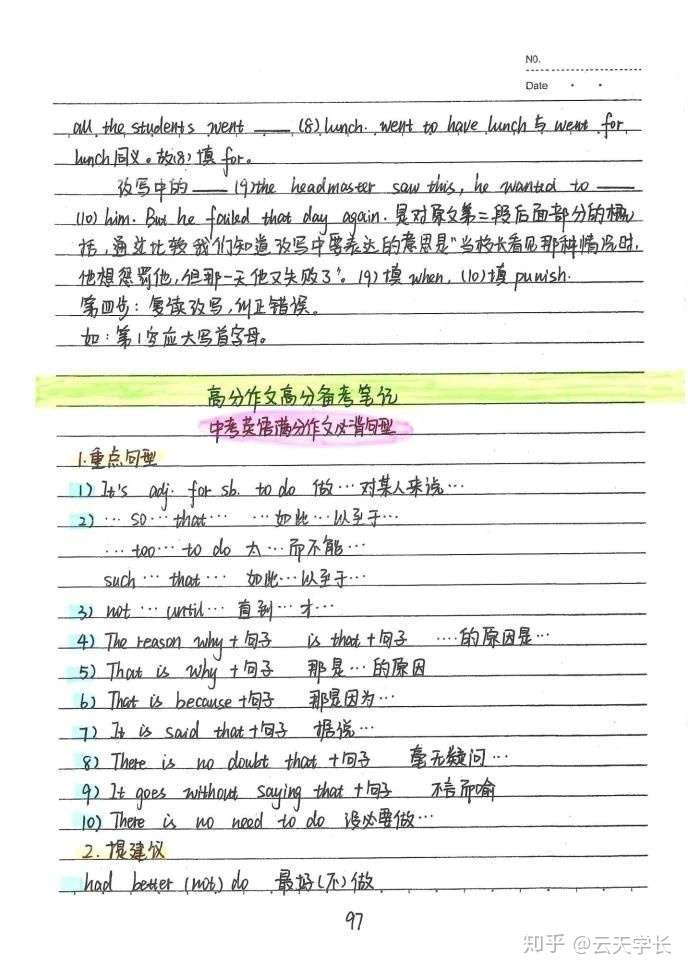 NO.
Date
all the students went ___ (8) lunch. went to have lunch与went for
lunch同义。故(8)填for。
改写中的 ___ (9) the headmaster saw this, he wanted to ___
(10) him. But he failed that day again. 是对原文第二段后面部分的概
括,通过比较我们知道改写中要表达的意思是"当校长看见那种情况时,
他想惩罚他,但那一天他又失败了"。(9)填when, (10)填punish.
第四步:复读改写,纠正错误。
如:第1空应大写首字母。
高分作文高分备考笔记
中考英语满分作文必背句型
1.重点句型
1) It's adj. for sb. to do 做…对某人来说…
2) … so … that … …如此…以至于…
… too … to do 太…而不能…
such … that … 如此…以至于…
3) not … until … 直到…才…
4) The reason why+句子 is that+句子 ….的原因是…
5) That is why+句子 那是…的原因
6) That is because+句子 那是因为…
7) It is said that+句子 据说…
8) There is no doubt that+句子 毫无疑问…
9) It goes without saying that+句子 不言而喻
10) There is no need to do 没必要做…
2.提建议
had better (not) do 最好(不)做
97
知乎 @云天学长